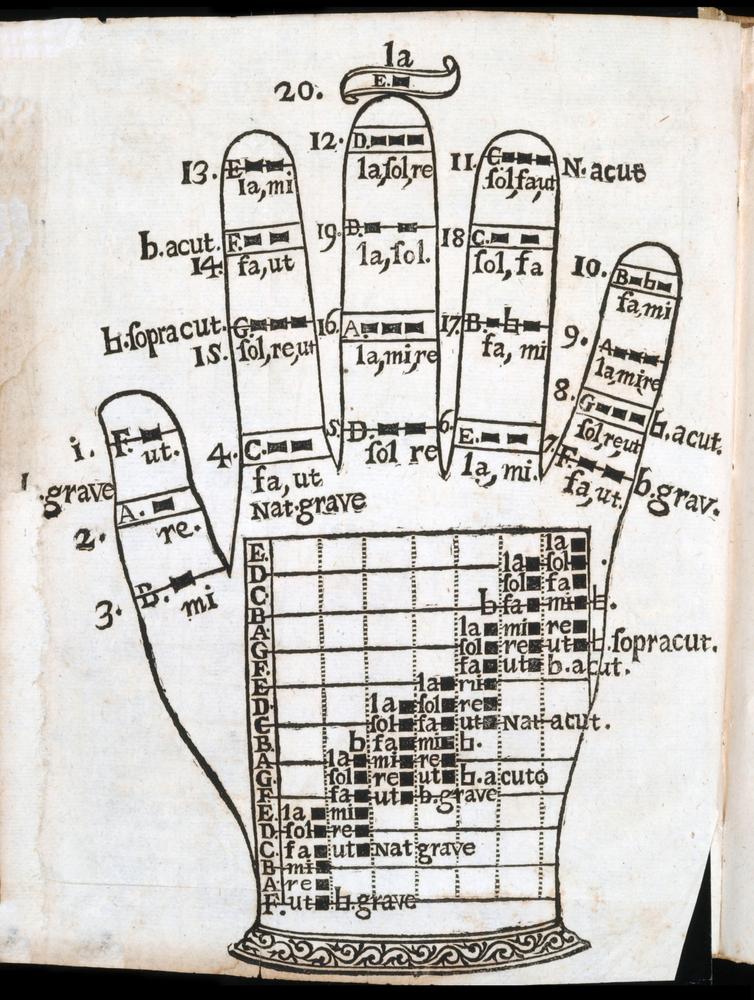 la
20. E.
12. D.
la, sol, re
13. E
la, mi
11. C
sol, fa, ut
N. acut
b. acut.
14. F.
fa, ut
19. D.
la, sol.
18 C.
sol, fa
10. B b
fa, mi
b. sopracut.
15. G
sol, re, ut
16. A
la, mi, re
17. B. b
fa, mi
9. A
la, mi re
8. G
sol, re ut
b. acut.
1. F.
ut.
4. C.
fa, ut
Nat. grave
5. D.
sol re
6. E.
la, mi.
7. F.
fa, ut.
b. grav.
. grave
2. A.
re.
3. B.
mi
E la
D la sol
C sol fa
B b fa mi b.
A la mi re
G sol re ut b. sopracut.
F fa ut b. acut.
E la mi
D la sol re
C sol fa ut Nat acut.
B b fa mi b.
A la mi re
G sol re ut b. acuto
F fa ut b. grave
E la mi
D sol re
C fa ut Nat grave
B mi
A re
F. ut b. grave